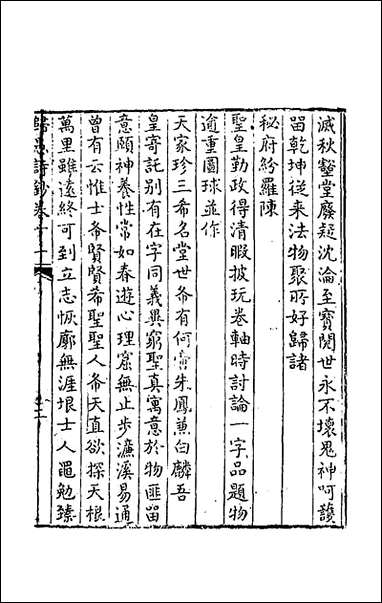 滅秋壑堂廢疑沈淪至寶閱世永不壞鬼神呵護
留乾坤從来法物聚所好歸諸
秘府紛羅陳
聖皇勤政得清暇披玩卷軸時討論一字品題物
逾重圖球並作
天家珍三希名堂世希有何啻朱鳳兼白麟吾
皇寄託别有在字同義異窮聖真寓意於物匪留
意頤神養性常如春遊心理窟無止步濂溪易通
曾有云惟士希賢賢希聖聖人希天直欲探天根
萬里雖遠終可到立志恢廓無涯垠士人黽勉臻
歸愚詩鈔卷十